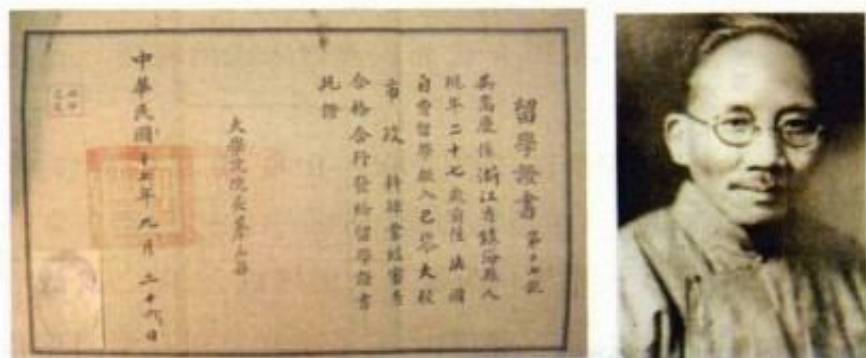 留學證書 第十七號
吳萬慶係浙江省鎮海縣人
現年二十七歲前往法國
自費留學歇入巴黎大學
市政 科肄業經審查
合格合行發給留學證書
此證
大學院院長蔡元培
中華民國十七年九月二十六日